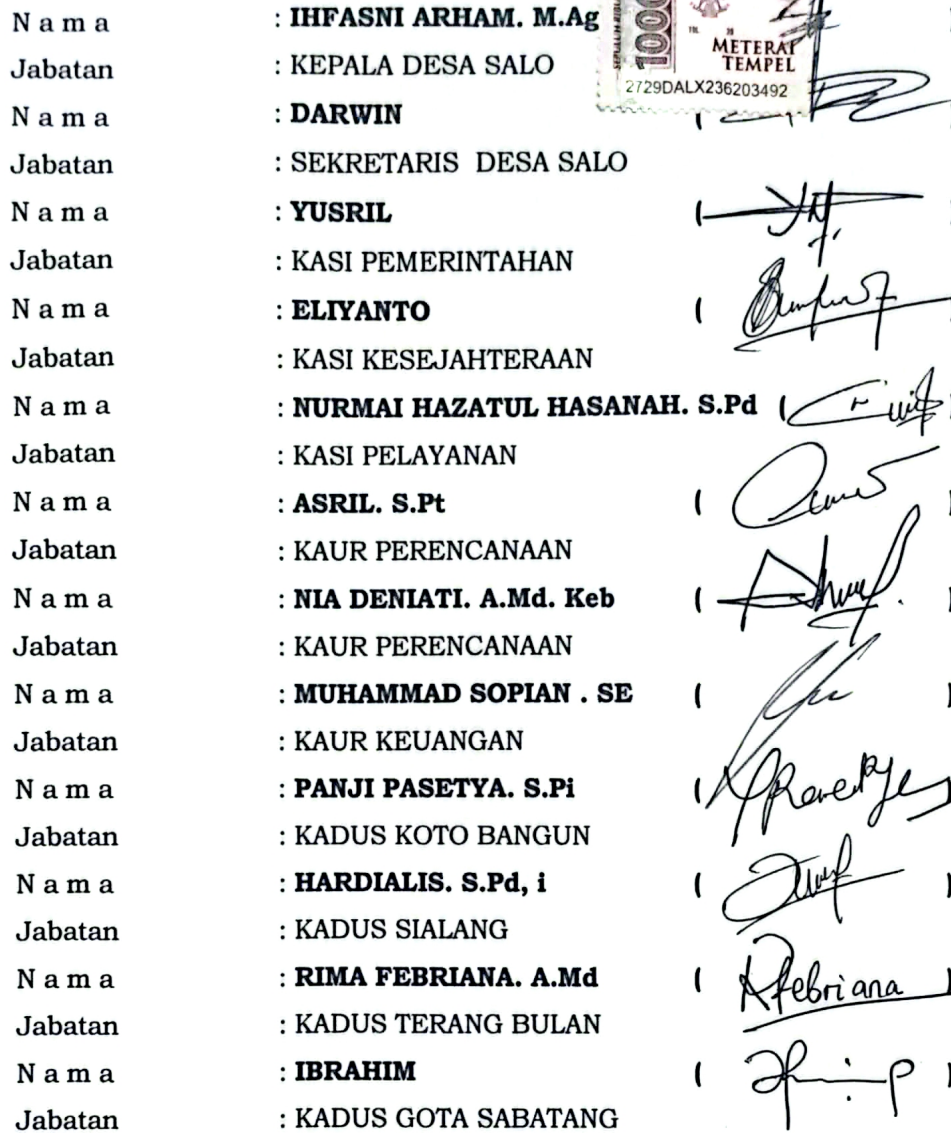 N a m a : IHFASNI ARHAM. M.Ag
1000
METERAI
TEMPEL
2729DALX236203492
Jabatan : KEPALA DESA SALO
N a m a : DARWIN (
Jabatan : SEKRETARIS DESA SALO
N a m a : YUSRIL (
Jabatan : KASI PEMERINTAHAN
N a m a : ELIYANTO (
Jabatan : KASI KESEJAHTERAAN
N a m a : NURMAI HAZATUL HASANAH. S.Pd (
Jabatan : KASI PELAYANAN
N a m a : ASRIL. S.Pt ( )
Jabatan : KAUR PERENCANAAN
N a m a : NIA DENIATI. A.Md. Keb ( )
Jabatan : KAUR PERENCANAAN
N a m a : MUHAMMAD SOPIAN . SE ( )
Jabatan : KAUR KEUANGAN
N a m a : PANJI PASETYA. S.Pi (
Jabatan : KADUS KOTO BANGUN
N a m a : HARDIALIS. S.Pd, i ( )
Jabatan : KADUS SIALANG
N a m a : RIMA FEBRIANA. A.Md ( RFebriana )
Jabatan : KADUS TERANG BULAN
N a m a : IBRAHIM ( )
Jabatan : KADUS GOTA SABATANG